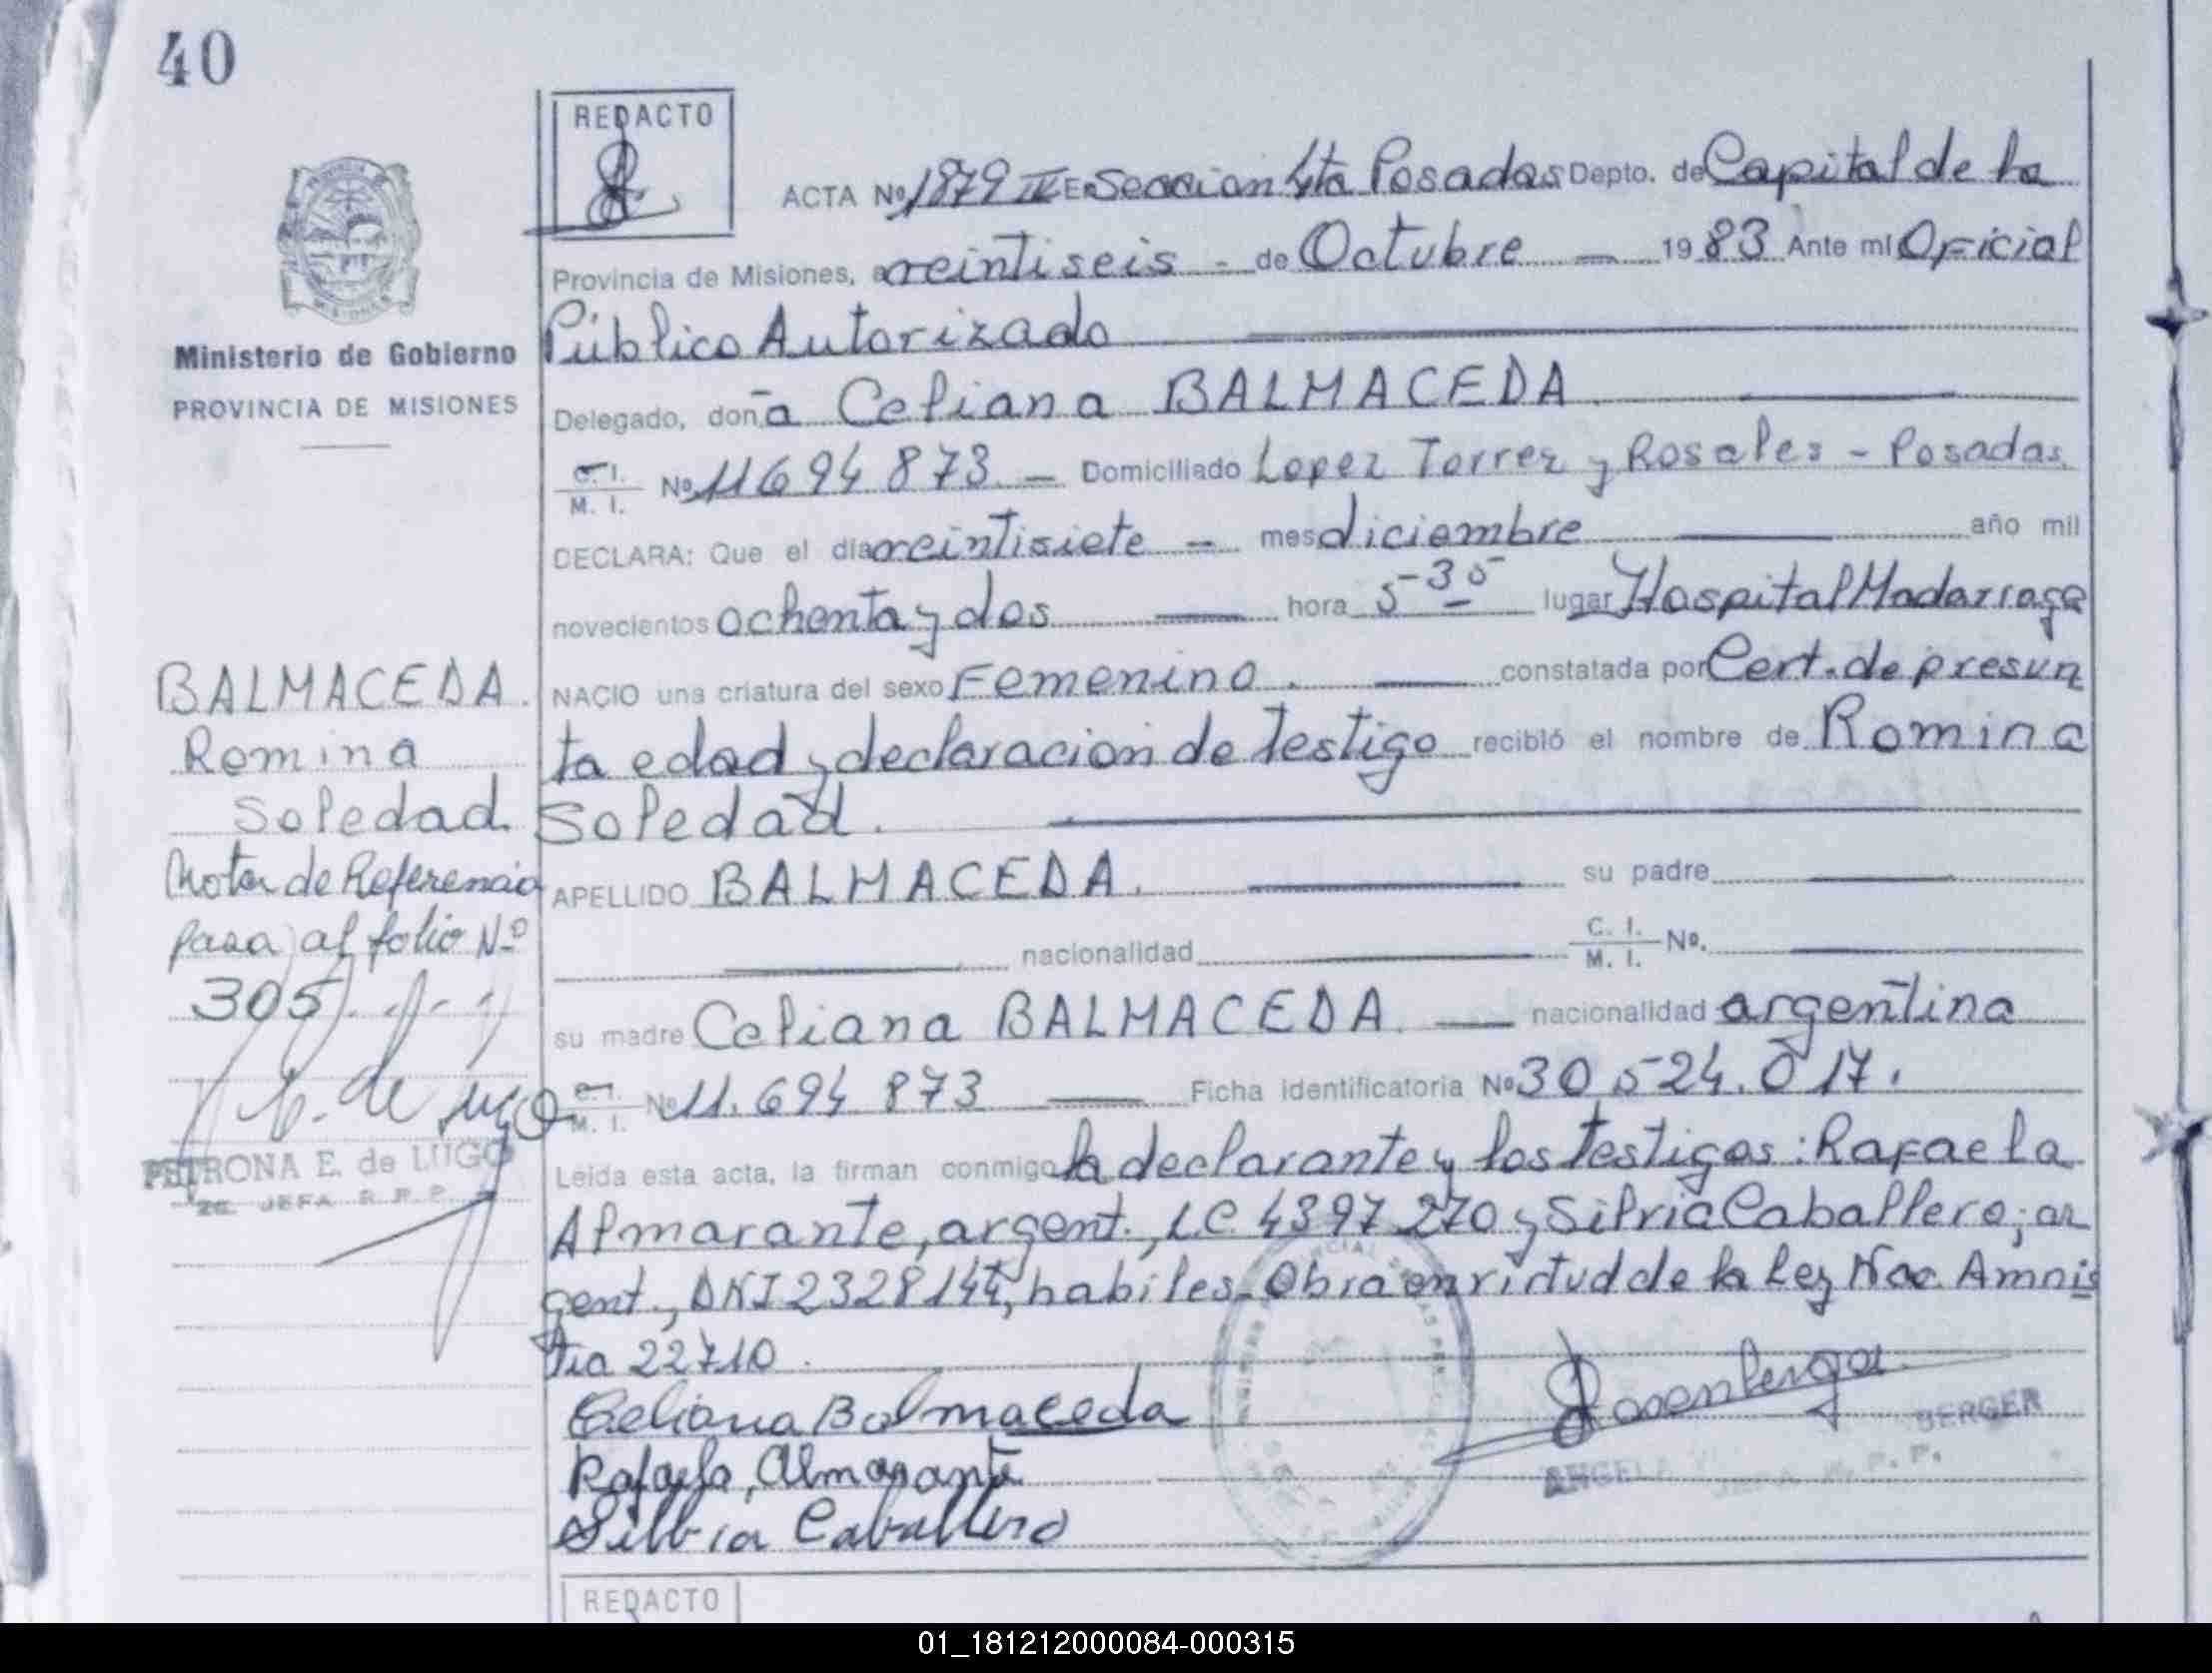 40
REDACTO
ACTA Nº 1879 IV En Seccion 4ta Posadas Depto. de Capital de la
Provincia de Misiones, a veintiseis - de Octubre — 1983 Ante mí Oficial
Público Autorizado
Ministerio de Gobierno
PROVINCIA DE MISIONES
Delegado, doña Celiana BALMACEDA
C. I.
M. I. Nº 11694873. — Domiciliado Lopez Torres y Rosales - Posadas.
DECLARA: Que el día veintisiete — mes diciembre — año mil
novecientos ochenta y dos — hora 5-30 — lugar Hospital Madarraga
NACIO una criatura del sexo Femenino. — constatada por Cert. de presun
ta edad y declaracion de Testigo recibió el nombre de Romina
Soledad.
BALMACEDA.
Romina
Soledad.
Nota de Referencia
pasa al folio Nº
305
PETRONA E. de LUGO
2e. JEFA R. P. P.
APELLIDO BALMACEDA. — su padre —
— nacionalidad — C. I.
M. I. Nº. —
su madre Celiana BALMACEDA. — nacionalidad argentina
C. I.
M. I. Nº 11.694 873 — Ficha identificatoria Nº 30 524.017.
Leída esta acta, la firman conmigo la declarante y los Testigos: Rafaela
Almarante, argent., L.C. 4397270 y Silvia Caballero, ar
gent., DNI 2328144, habiles. Obra en virtud de la Ley Nac. Amnis
tia 22710.
Celiana Balmaceda
Rafaela, Almarante
Silbia Caballero
Rosenberger
ANGELA BERGER
R. P. P.
REDACTO
01_181212000084-000315